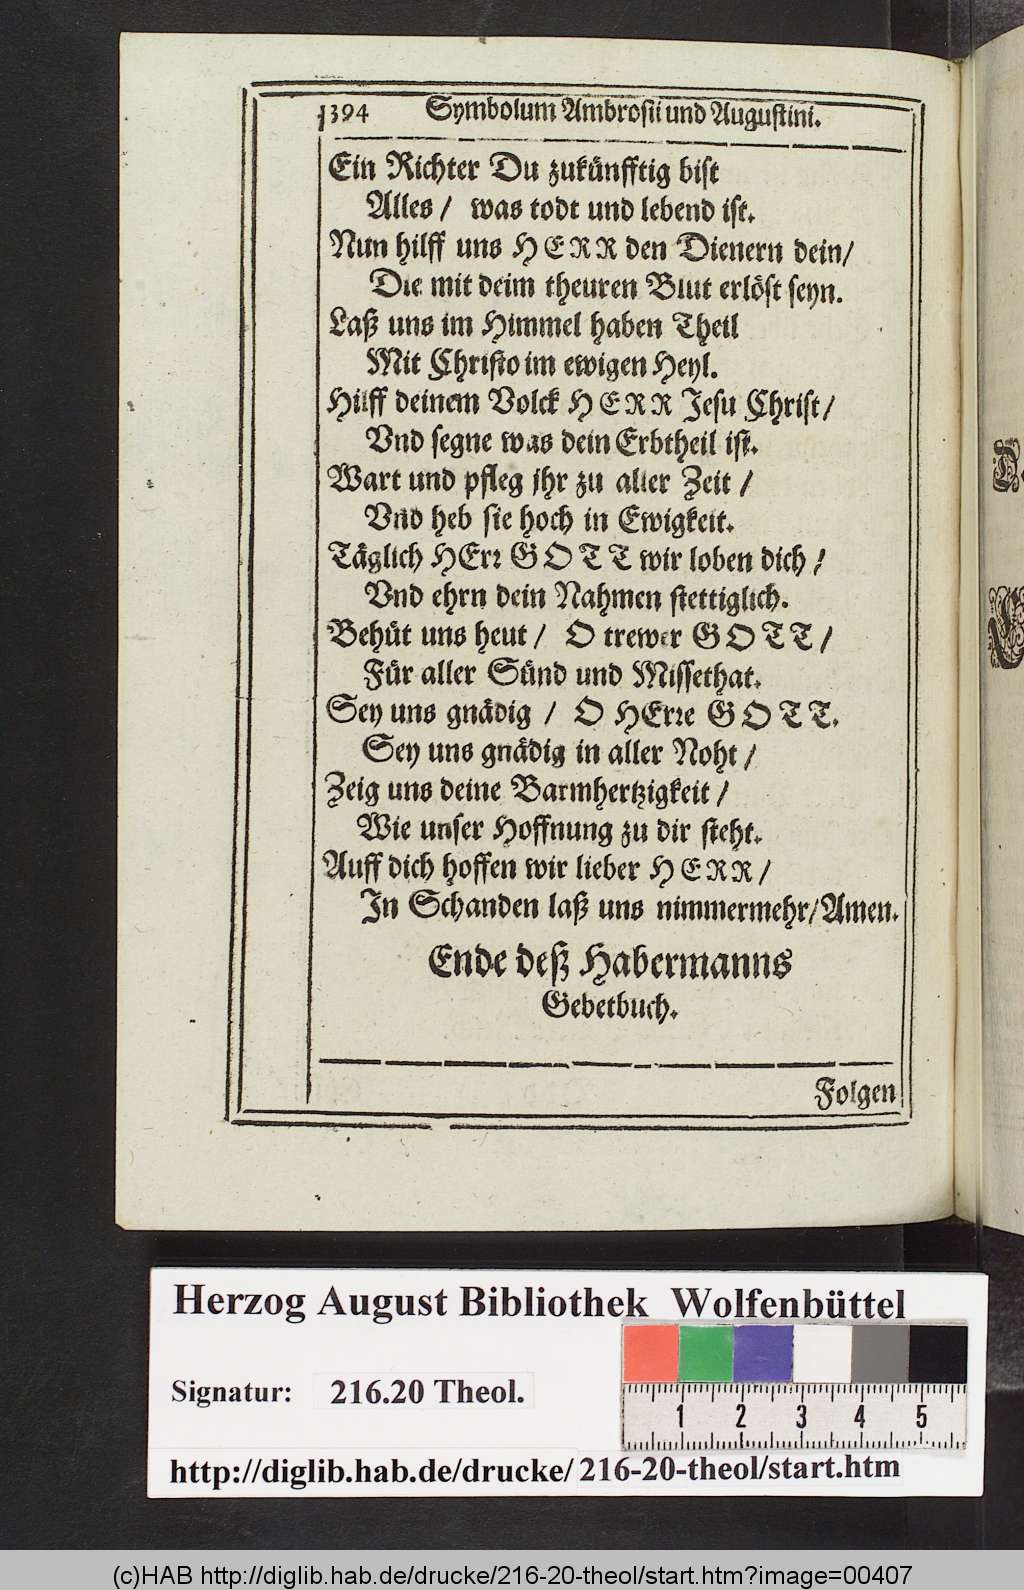 394 Symbolum Ambrosii und Augustini.
Ein Richter Du zukünfftig bist
Alles / was todt und lebend ist.
Nun hilff uns HERR den Dienern dein/
Die mit deim theuren Blut erlöst seyn.
Laß uns im Himmel haben Theil
Mit Christo im ewigen Heyl.
Hilff deinem Volck HERR Jesu Christ/
Vnd segne was dein Erbtheil ist.
Wart und pfleg ihr zu aller Zeit /
Vnd heb sie hoch in Ewigkeit.
Täglich HErr GOTT wir loben dich /
Vnd ehrn dein Nahmen stettiglich.
Behüt uns heut / O trewer GOTT/
Für aller Sünd und Missethat.
Sey uns gnädig / O HErre GOTT.
Sey uns gnädig in aller Noht /
Zeig uns deine Barmhertzigkeit /
Wie unser Hoffnung zu dir steht.
Auff dich hoffen wir lieber HERR/
In Schanden laß uns nimmermehr/Amen.
Ende deß Habermanns
Gebetbuch.
Folgen
Herzog August Bibliothek Wolfenbüttel
Signatur: 216.20 Theol.
1 2 3 4 5
http://diglib.hab.de/drucke/216-20-theol/start.htm
(c)HAB http://diglib.hab.de/drucke/216-20-theol/start.htm?image=00407